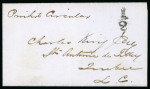 Printed Circular
Charles King Esq
St Antoine de Tilly
Quebec
L.C.